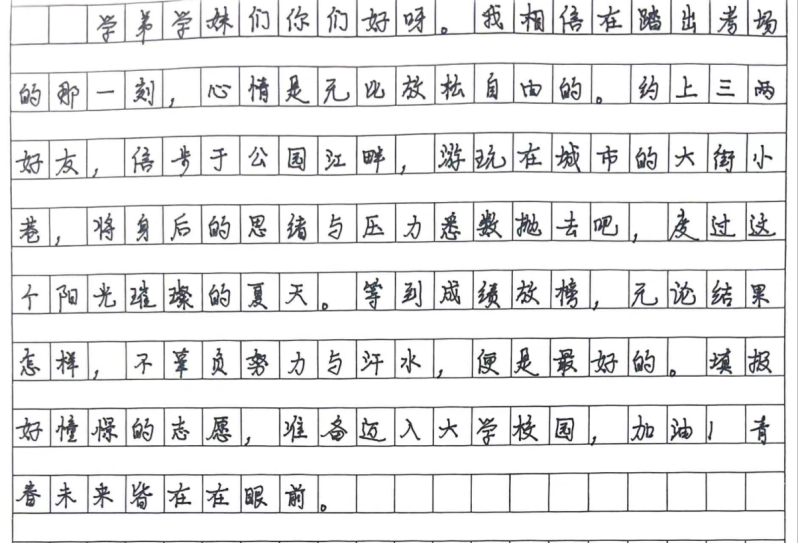 学弟学妹们你们好呀。我相信在踏出考场
的那一刻，心情是无比放松自由的。约上三两
好友，信步于公园江畔，游玩在城市的大街小
巷，将身后的思绪与压力悉数抛去吧，度过这
个阳光璀璨的夏天。等到成绩放榜，无论结果
怎样，不辜负努力与汗水，便是最好的。填报
好憧憬的志愿，准备迈入大学校园，加油！青
春未来皆在在眼前。